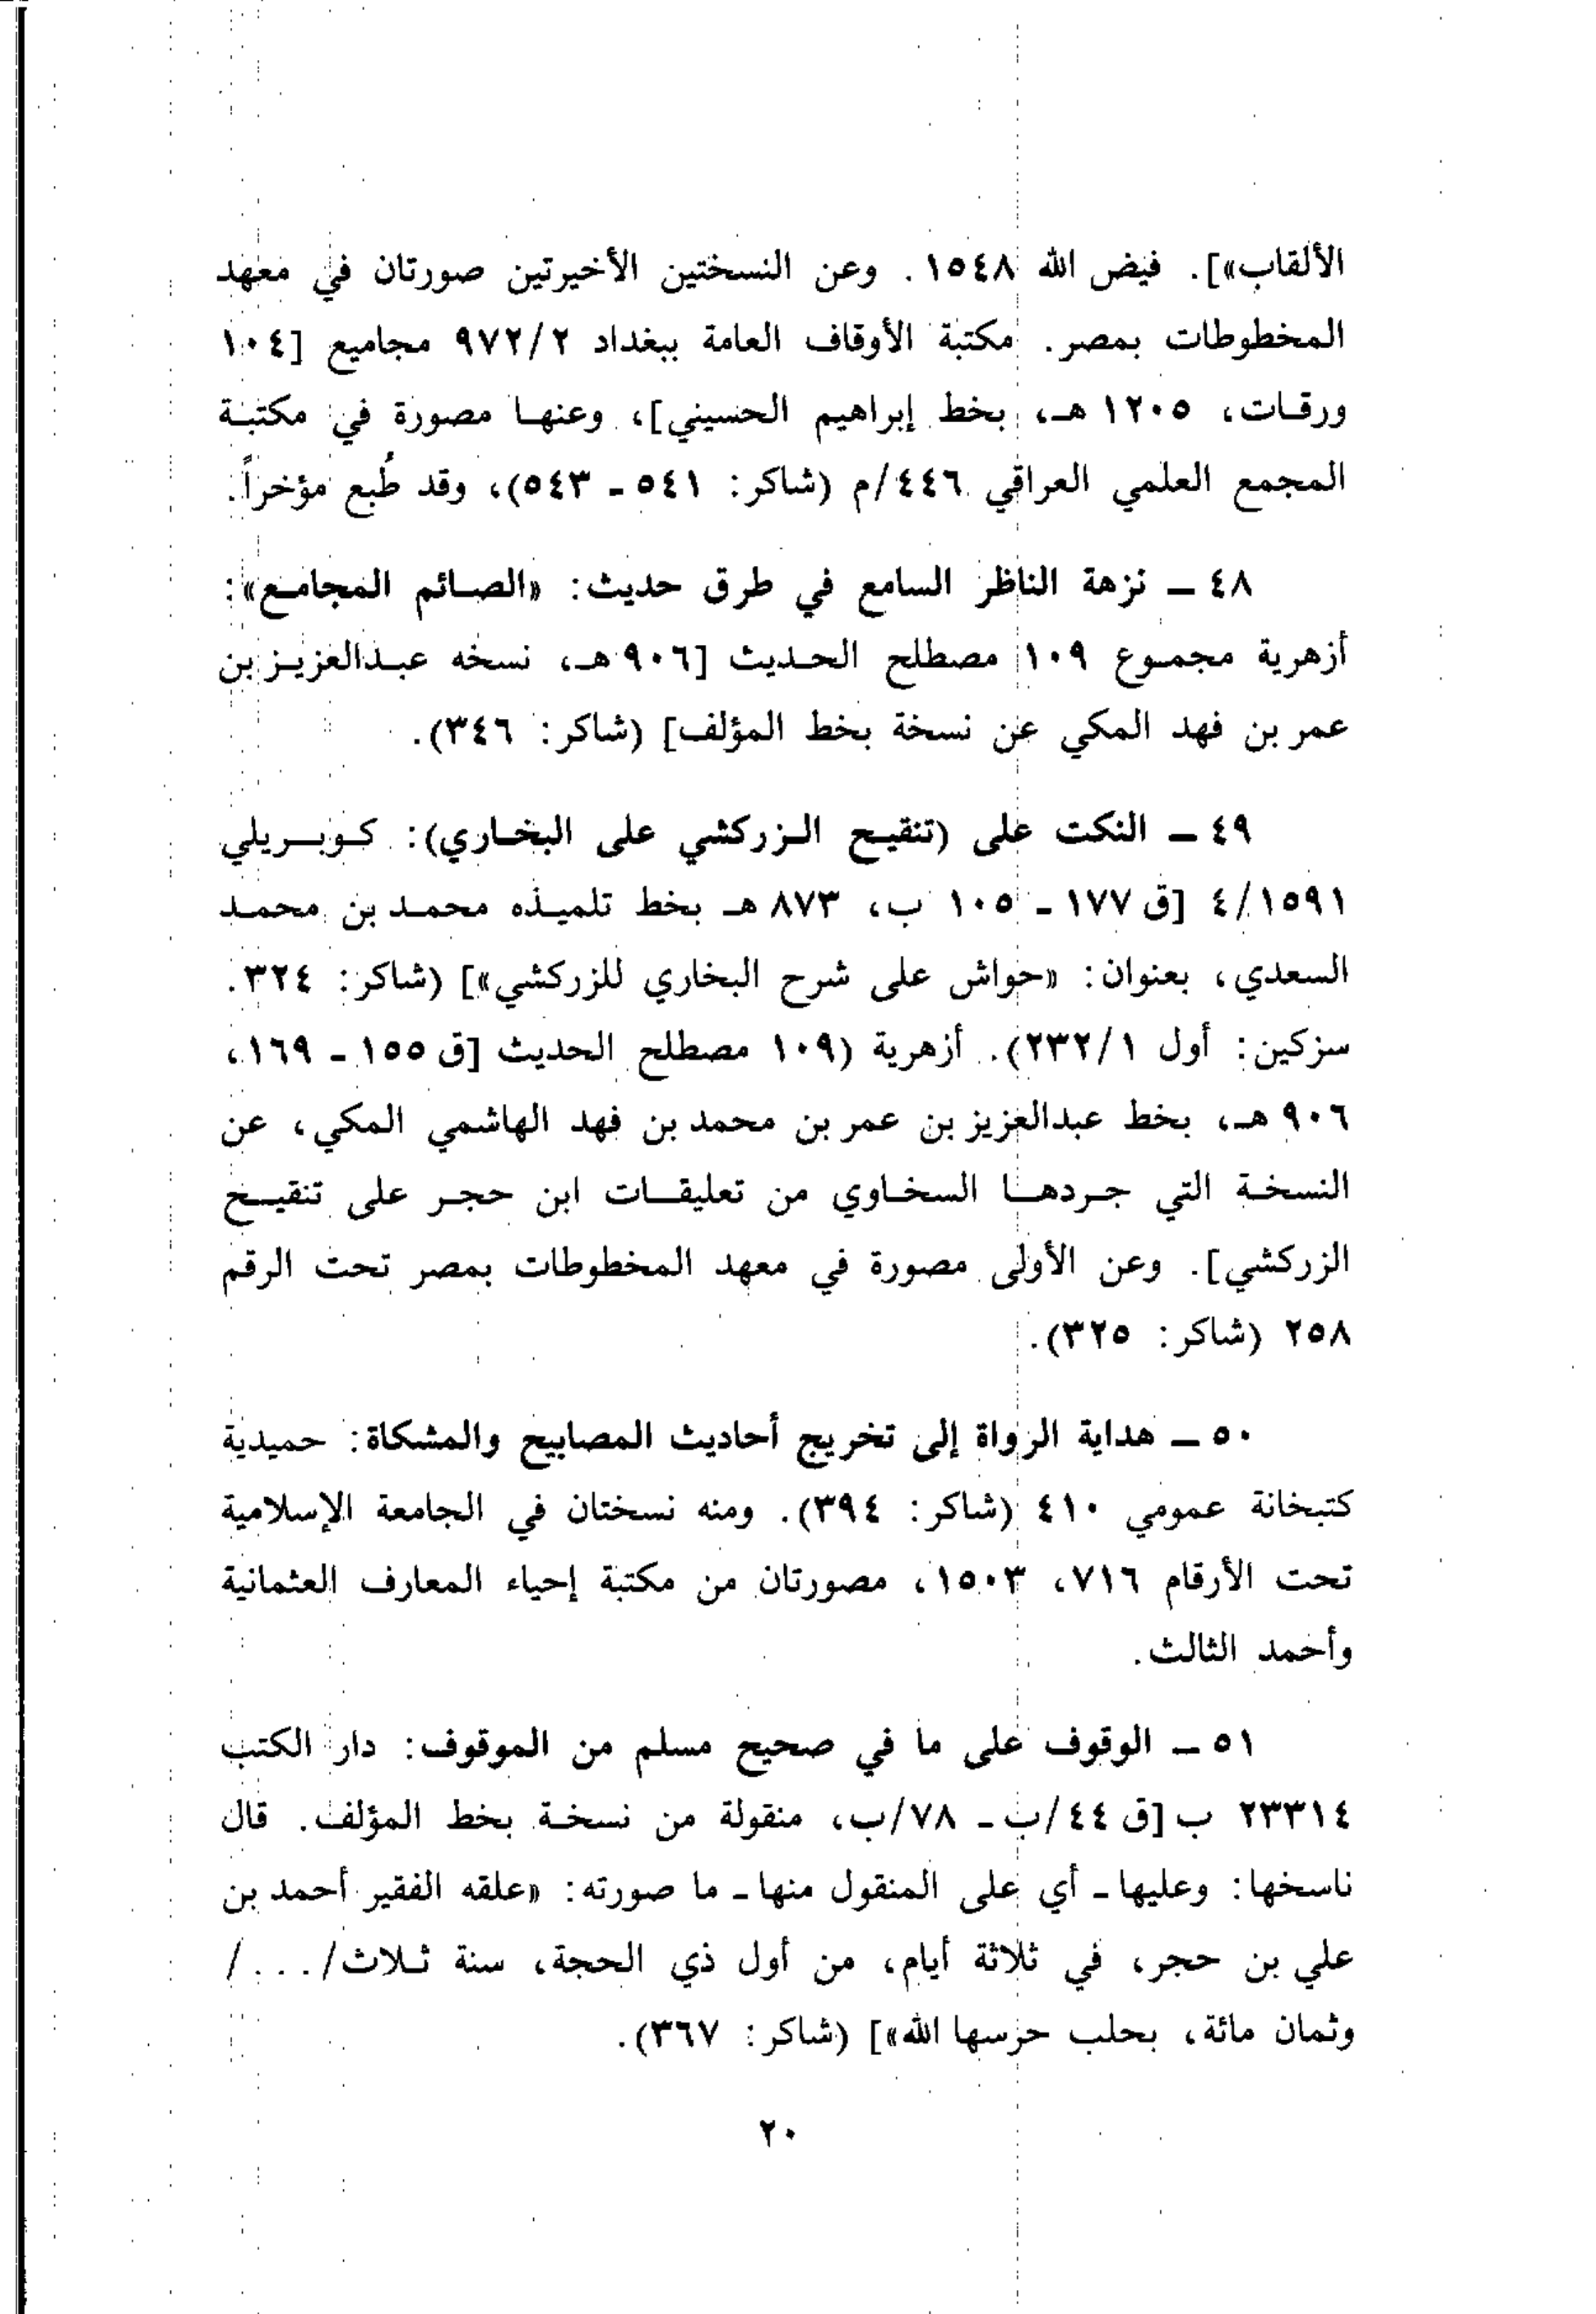 الألقاب»]. فيض الله ١٥٤٨. وعن النسختين الأخيرتين صورتان في معهد
المخطوطات بمصر. مكتبة الأوقاف العامة ببغداد ٩٧٢/٢ مجاميع [١٠٤
ورقات، ١٢٠٥ هـ، بخط إبراهيم الحسيني]، وعنها مصورة في مكتبة
المجمع العلمي العراقي ٤٤٦/م (شاكر: ٥٤١ - ٥٤٣)، وقد طُبع مؤخراً.
٤٨ ــ نزهة الناظر السامع في طرق حديث: «الصائم المجامع»:
أزهرية مجموع ١٠٩ مصطلح الحديث [٩٠٦ هـ، نسخه عبدالعزيز بن
عمر بن فهد المكي عن نسخة بخط المؤلف] (شاكر: ٣٤٦).
٤٩ ــ النكت على (تنقيح الزركشي على البخاري): كوبريلي
٤/١٥٩١ [ق ١٧٧ - ١٠٥ ب، ٨٧٣ هـ بخط تلميذه محمد بن محمد
السعدي، بعنوان: «حواش على شرح البخاري للزركشي»] (شاكر: ٣٢٤.
سزكين: أول ٢٣٢/١). أزهرية (١٠٩ مصطلح الحديث [ق ١٥٥ - ١٦٩،
٩٠٦ هـ، بخط عبدالعزيز بن عمر بن محمد بن فهد الهاشمي المكي، عن
النسخة التي جردها السخاوي من تعليقات ابن حجر على تنقيح
الزركشي]. وعن الأولى مصورة في معهد المخطوطات بمصر تحت الرقم
٢٥٨ (شاكر: ٣٢٥).
٥٠ ــ هداية الرواة إلى تخريج أحاديث المصابيح والمشكاة: حميدية
كتبخانة عمومي ٤١٠ (شاكر: ٣٩٤). ومنه نسختان في الجامعة الإسلامية
تحت الأرقام ٧١٦، ١٥٠٣، مصورتان من مكتبة إحياء المعارف العثمانية
وأحمد الثالث.
٥١ ــ الوقوف على ما في صحيح مسلم من الموقوف: دار الكتب
٢٣٣١٤ ب [ق ٤٤/ب - ٧٨/ب، منقولة من نسخة بخط المؤلف. قال
ناسخها: وعليها - أي على المنقول منها - ما صورته: «علقه الفقير أحمد بن
علي بن حجر، في ثلاثة أيام، من أول ذي الحجة، سنة ثلاث/.../
وثمان مائة، بحلب حرسها الله»] (شاكر: ٣٦٧).
٢٠